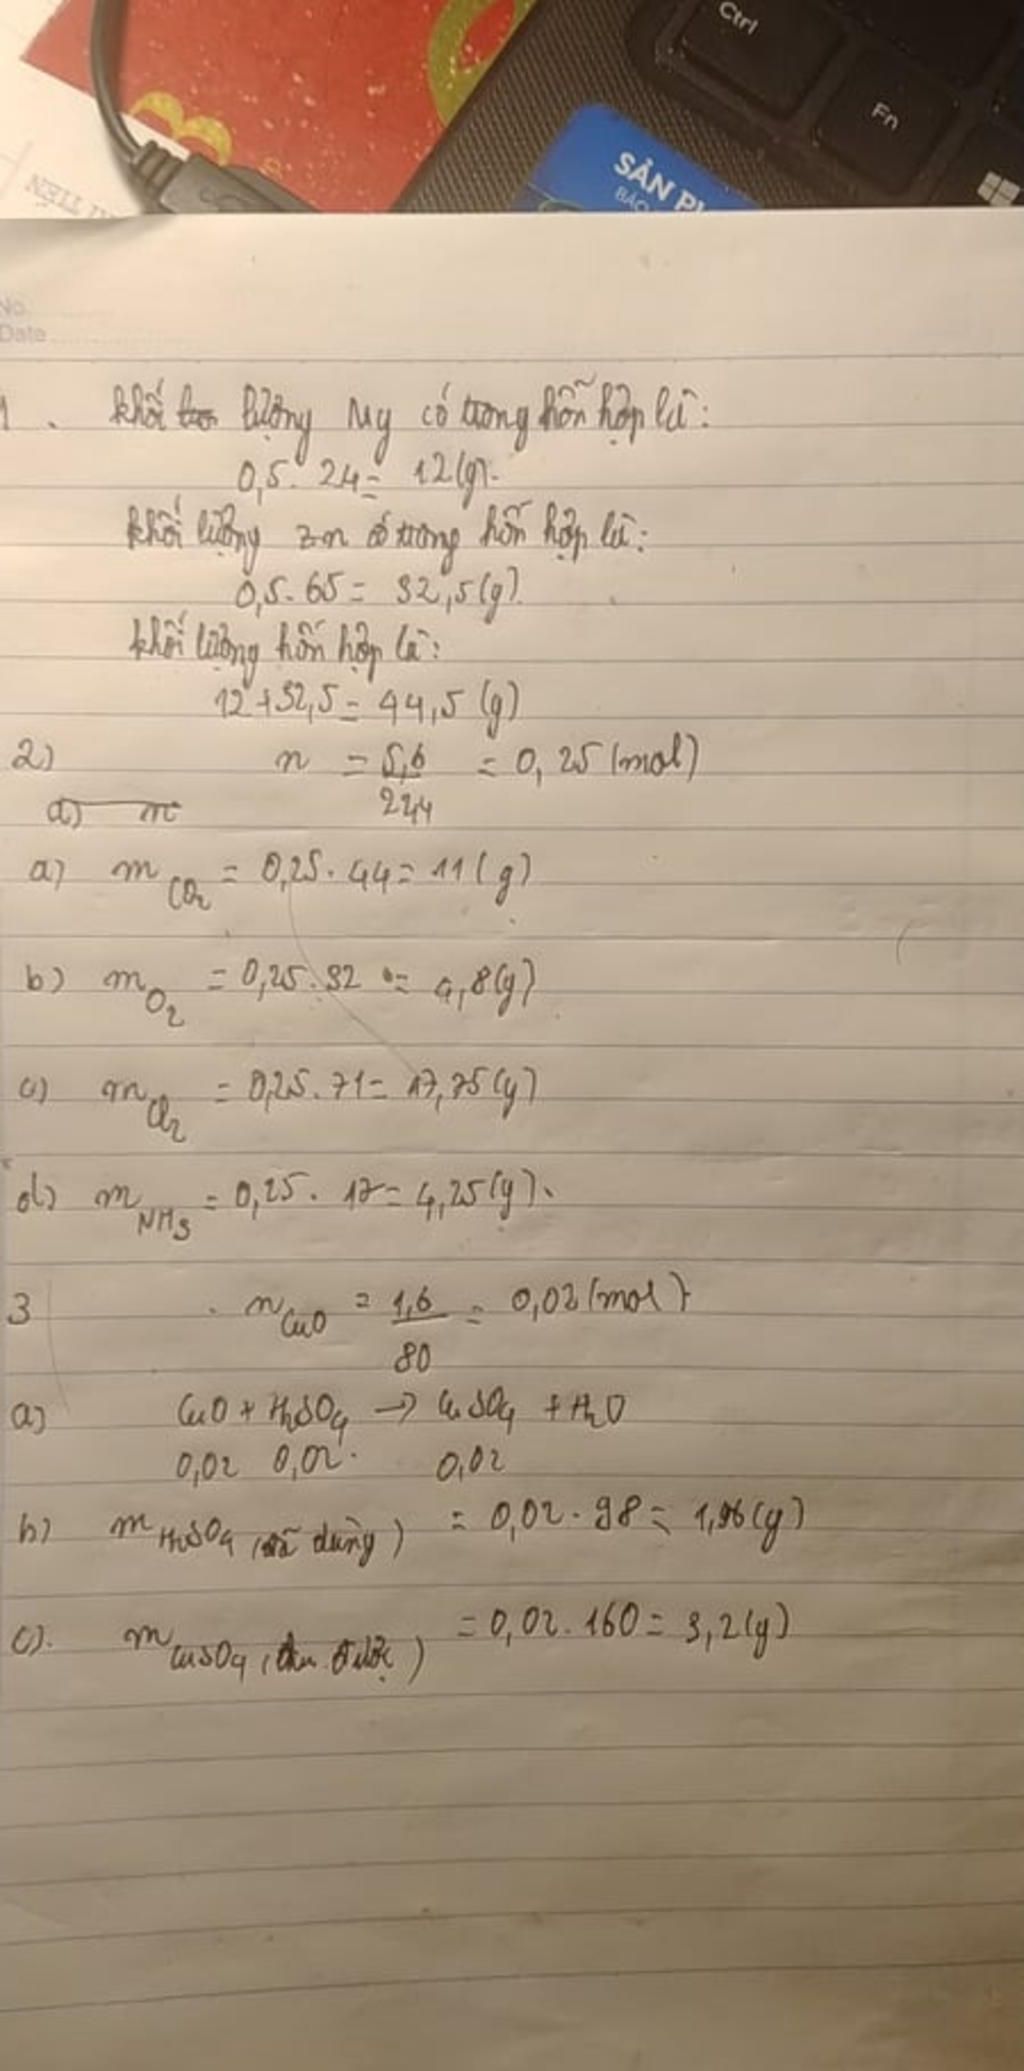 Ctrl
Fn
SẢN PH
BẢO
No.
Date
1. khối lượng Mg có trong hỗn hợp là:
0,5. 24 = 12(g).
khối lượng zn có trong hỗn hợp là:
0,5. 65 = 32,5(g).
khối lượng hỗn hợp là:
12 + 32,5 = 44,5 (g)
2) n = 5,6/22,4 = 0,25 (mol)
a) m
a) m CO2 = 0,25. 44 = 11(g)
b) m O2 = 0,25. 32 = 4,8(g)
c) m Cl2 = 0,25. 71 = 17,75(g)
d) m NH3 = 0,25. 17 = 4,25(g).
3 n CuO = 1,6/80 = 0,02 (mol)
a) CuO + H2SO4 → CuSO4 + H2O
0,02 0,02 0,02
b) m H2SO4 (đã dùng) = 0,02. 98 = 1,96(g)
c). m CuSO4 (thu được) = 0,02. 160 = 3,2(g)